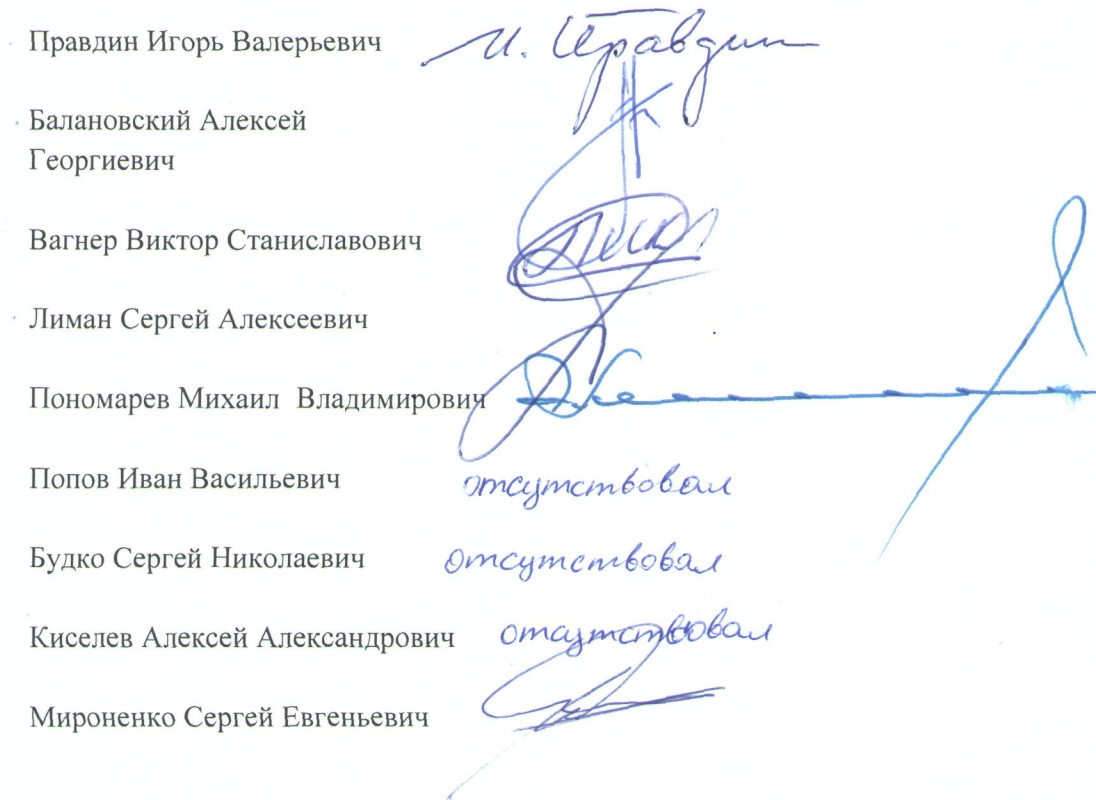 Правдин Игорь Валерьевич И. Правдин
Балановский Алексей
Георгиевич
Вагнер Виктор Станиславович
Лиман Сергей Алексеевич
Пономарев Михаил Владимирович
Попов Иван Васильевич отсутствовал
Будко Сергей Николаевич отсутствовал
Киселев Алексей Александрович отсутствовал
Мироненко Сергей Евгеньевич